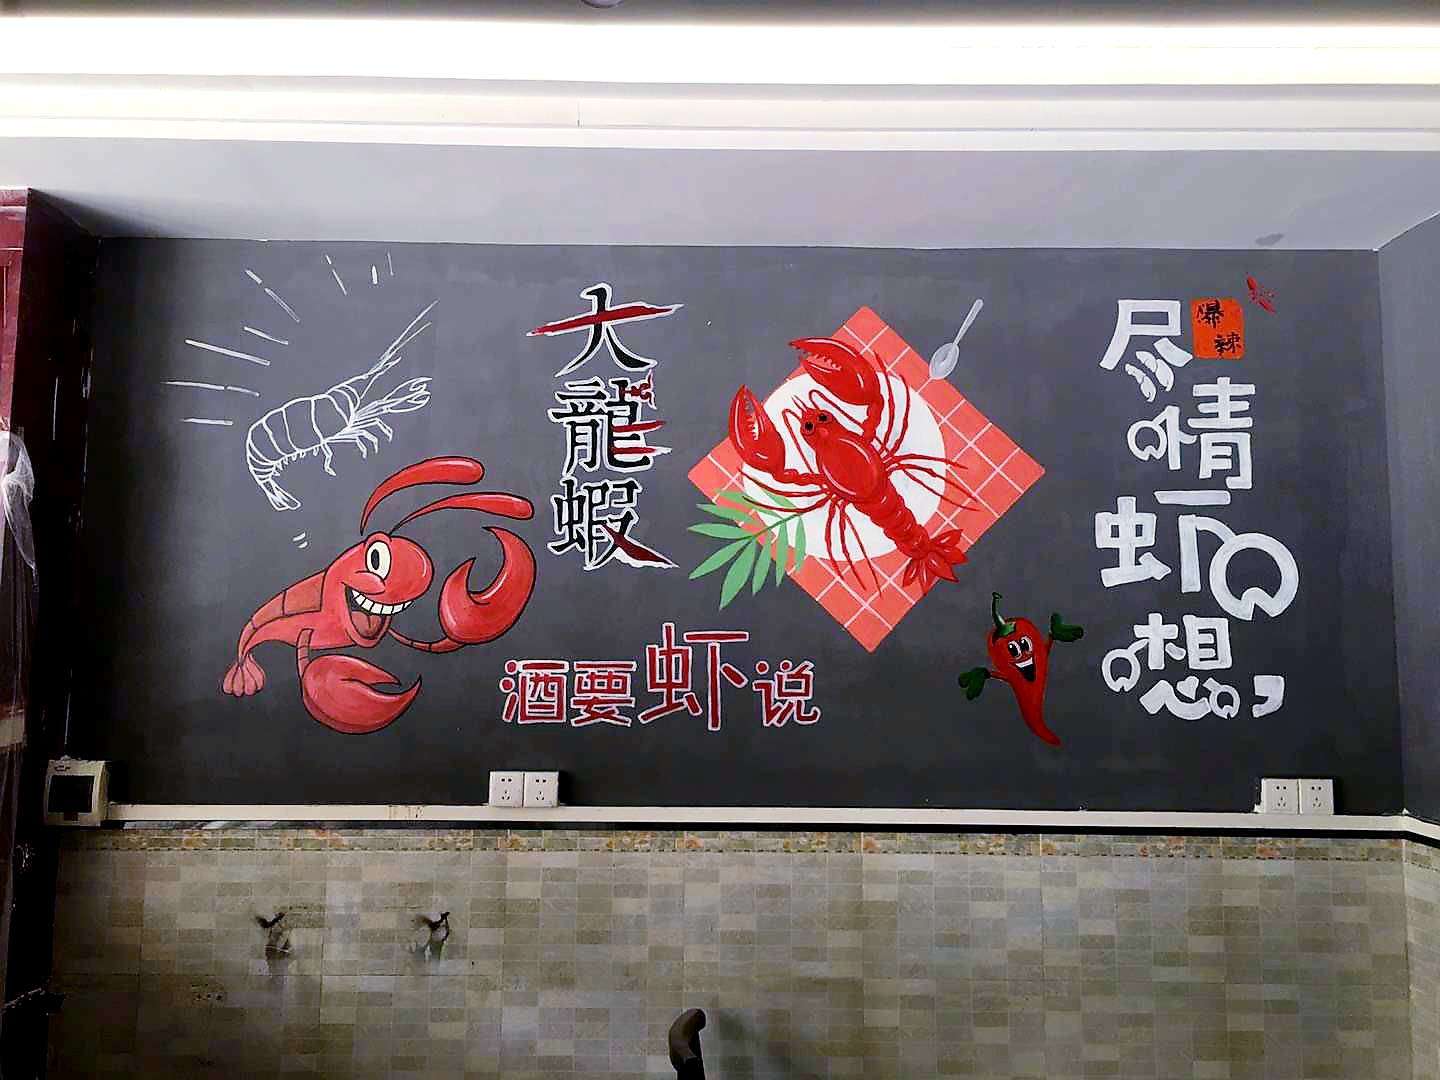 大龍蝦
酒要虾说
尽情虾想,
爆辣